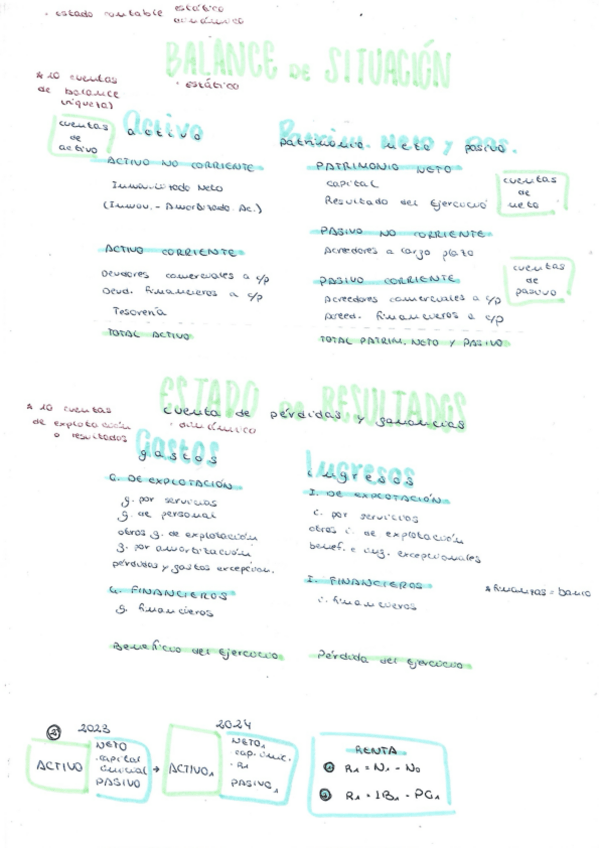 · estado contable estático
dinámico
BALANCE DE SITUACIÓN
· estático
* 10 cuentas
de balance
cuentas
de
activo
Activo
activo
Patrim. Neto y pas.
patrimonio neto y pasivo
ACTIVO NO CORRIENTE
Inmovilizado Neto
(Inmov. - Amortizado. Ac.)
ACTIVO CORRIENTE
Deudores comerciales a c/p
Deud. financieros a c/p
Tesorería
TOTAL ACTIVO
PATRIMONIO NETO
capital
Resultado del Ejercicio
cuentas
de
neto
PASIVO NO CORRIENTE
Acreedores a largo plazo
PASIVO CORRIENTE
Acreedores comerciales a c/p
Acreed. financieros a c/p
cuentas
de
pasivo
TOTAL PATRIM. NETO Y PASIVO
ESTADO DE RESULTADOS
cuenta de pérdidas y ganancias
· dinámico
* 10 cuentas
de explotación
o resultados
Gastos
gastos
G. DE EXPLOTACIÓN
g. por servicios
g. de personal
otros g. de explotación
g. por amortización
pérdidas y gastos excepcion.
G. FINANCIEROS
g. financieros
Beneficio del Ejercicio
Ingresos
ingresos
I. DE EXPLOTACIÓN
i. por servicios
otros i. de explotación
benef. e ing. excepcionales
I. FINANCIEROS
i. financieros
* finanzas = banco
Pérdida del Ejercicio
2023
ACTIVO
NETO
· capital
inicial
PASIVO
→
2024
ACTIVO₁
NETO₁
· cap. inic.
· R₁
PASIVO₁
RENTA
① R₁ = N₁ - N₀
② R₁ = IB₁ - PG₁